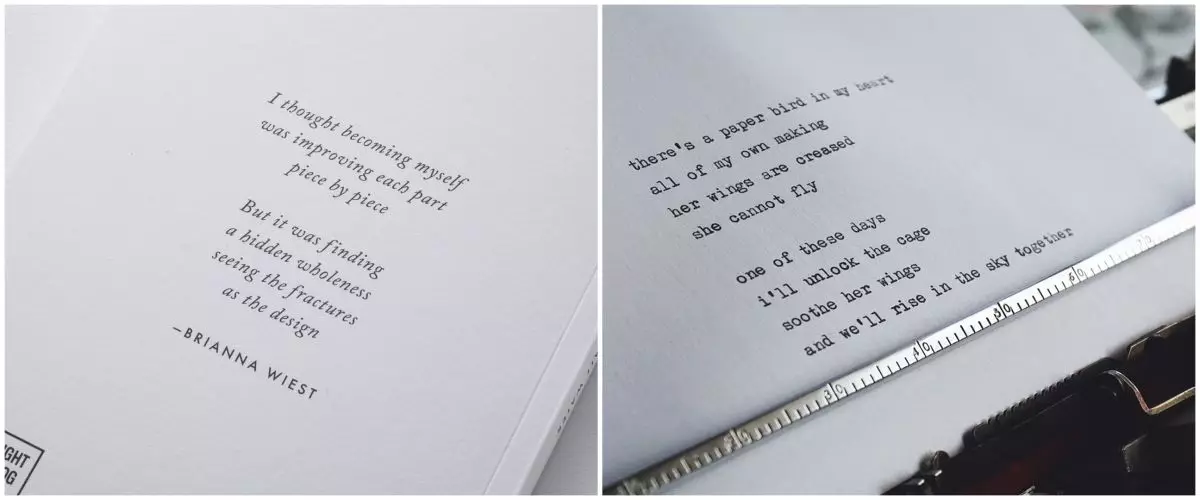 I thought becoming myself
was improving each part
piece by piece
But it was finding
a hidden wholeness
seeing the fractures
as the design
—BRIANNA WIEST
there's a paper bird in my heart
all of my own making
her wings are creased
she cannot fly
one of these days
i'll unlock the cage
soothe her wings
and we'll rise in the sky together
20 30 40 50 60 70